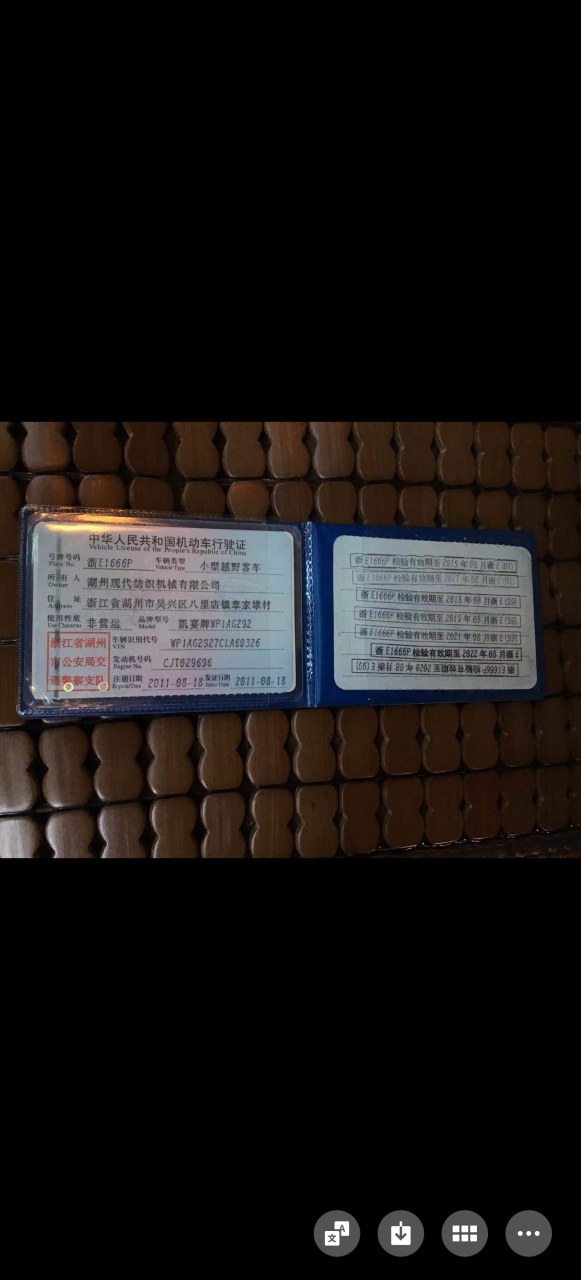 中华人民共和国机动车行驶证
Vehicle License of the People's Republic of China
号牌号码 浙E1666P 车辆类型 小型越野客车
Plate No. Vehicle Type
所有人 湖州现代纺织机械有限公司
Owner
住址 浙江省湖州市吴兴区八里店镇章家埭村
Address
使用性质 非营运 品牌型号 凯宴牌WP1AG292
Use Character Model
浙江省湖州
市公安局交
通警察支队
车辆识别代号 WP1AG2927CLA60326
VIN
发动机号码 CJT029696
Engine No.
注册日期 2011-08-18 发证日期 2011-08-18
Register Date Issue Date
浙E1666P 检验有效期至 2015年08月浙E(01)
浙E1666P 检验有效期至 2017年08月浙E
浙E1666P 检验有效期至 2018年08月浙E(99)
浙E1666P 检验有效期至 2019年08月浙E(99)
浙E1666P 检验有效期至 2021年08月浙E(99)
浙E1666P 检验有效期至 2022年08月浙E
浙E1666P 检验有效期至 2020年08月浙E(99)